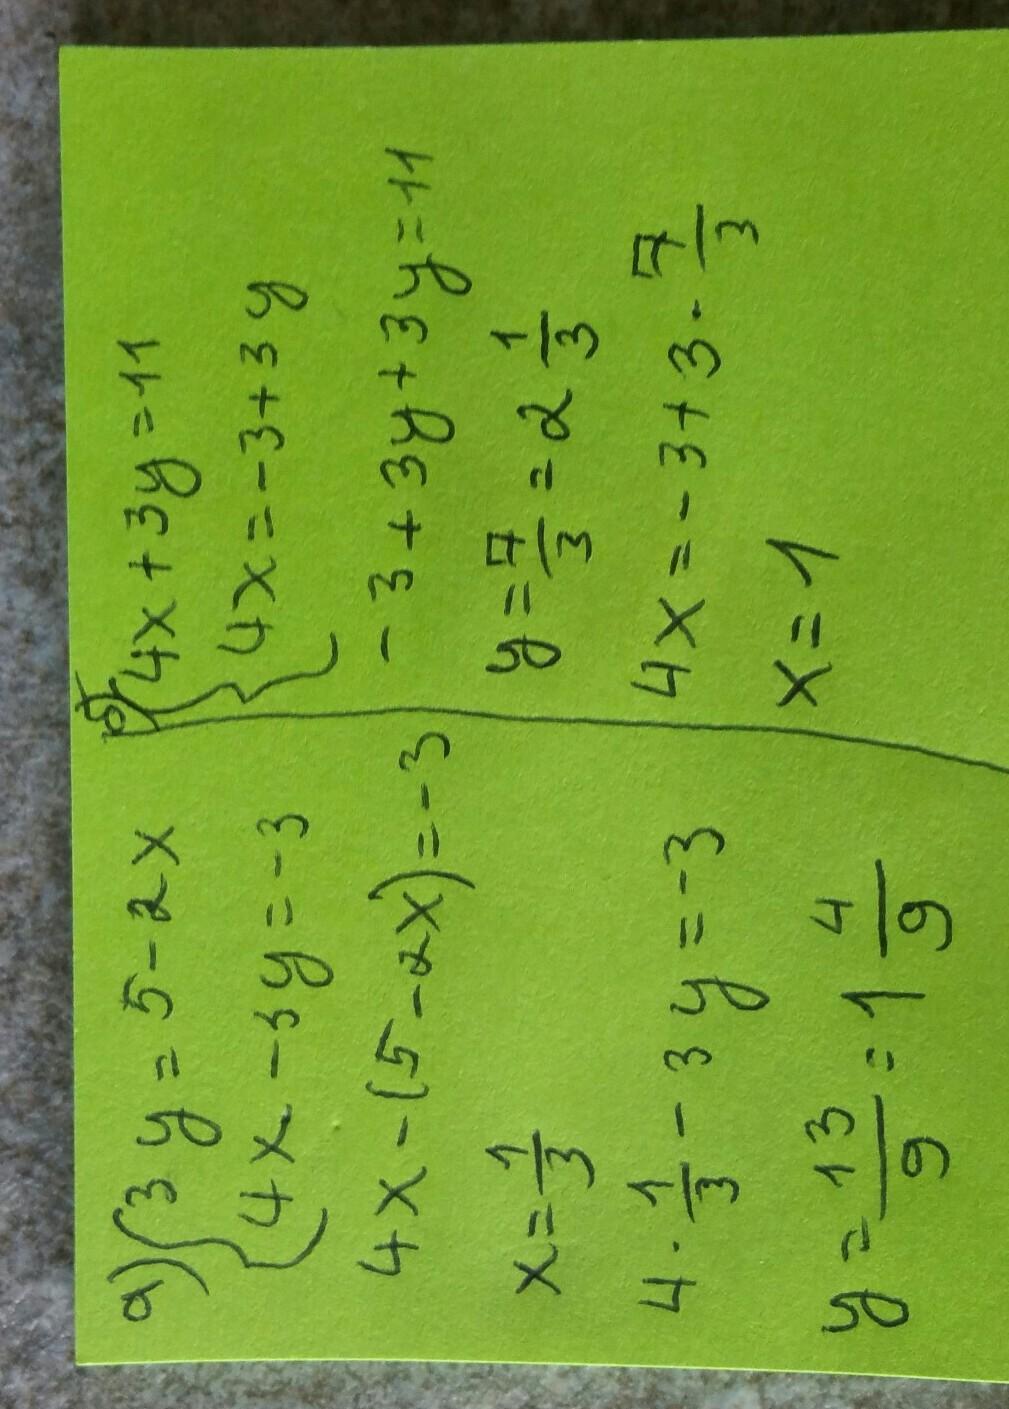 а) 3y = 5 - 2x
4x - 3y = -3
4x - (5 - 2x) = -3
x = 1/3
4 · 1/3 - 3y = -3
y = 13/9 = 1 4/9
б) 4x + 3y = 11
4x = -3 + 3y
-3 + 3y + 3y = 11
y = 7/3 = 2 1/3
4x = -3 + 3 · 7/3
x = 1